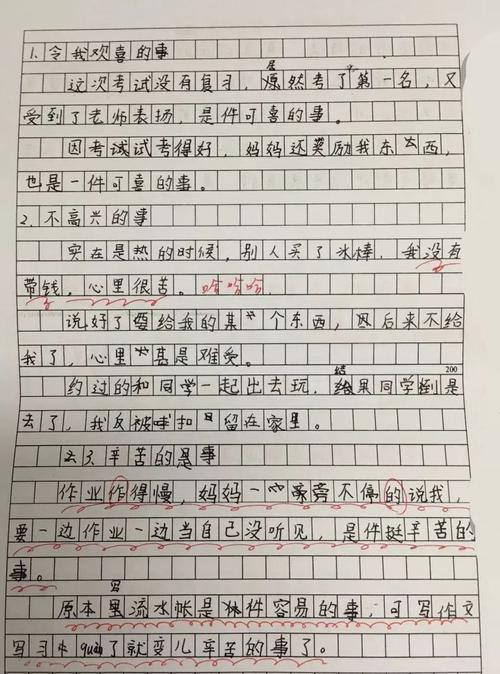 1.令我欢喜的事
这次考试没有复习,居然考了第一名,又
受到了老师表扬,是件可喜的事。
因考试试考得好,妈妈还奖励我东西,
也是一件可喜的事。
2.不高兴的事
实在是热的时候,别人买了冰棒,我没有
带钱,心里很苦。哈哈哈
说好了要给我的某个东西,因后来不给
我了,心里甚是难受。
200
约过的和同学一起出去玩,结果同学倒是
去了,我反被扣留在家里。
辛苦的是事
作业作得慢,妈妈一旁不停的说我,
要一边作业一边当自己没听见,是件挺辛苦的
事。
原本写流水帐是件容易的事,可写作文
写习guàn了就变儿辛苦的事了。